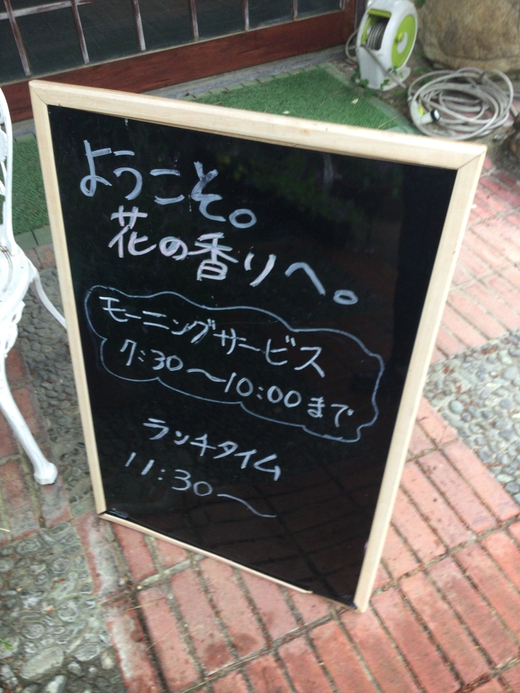 ようこそ。
花の香りへ。
モーニングサービス
7:30～10:00まで
ランチタイム
11:30～